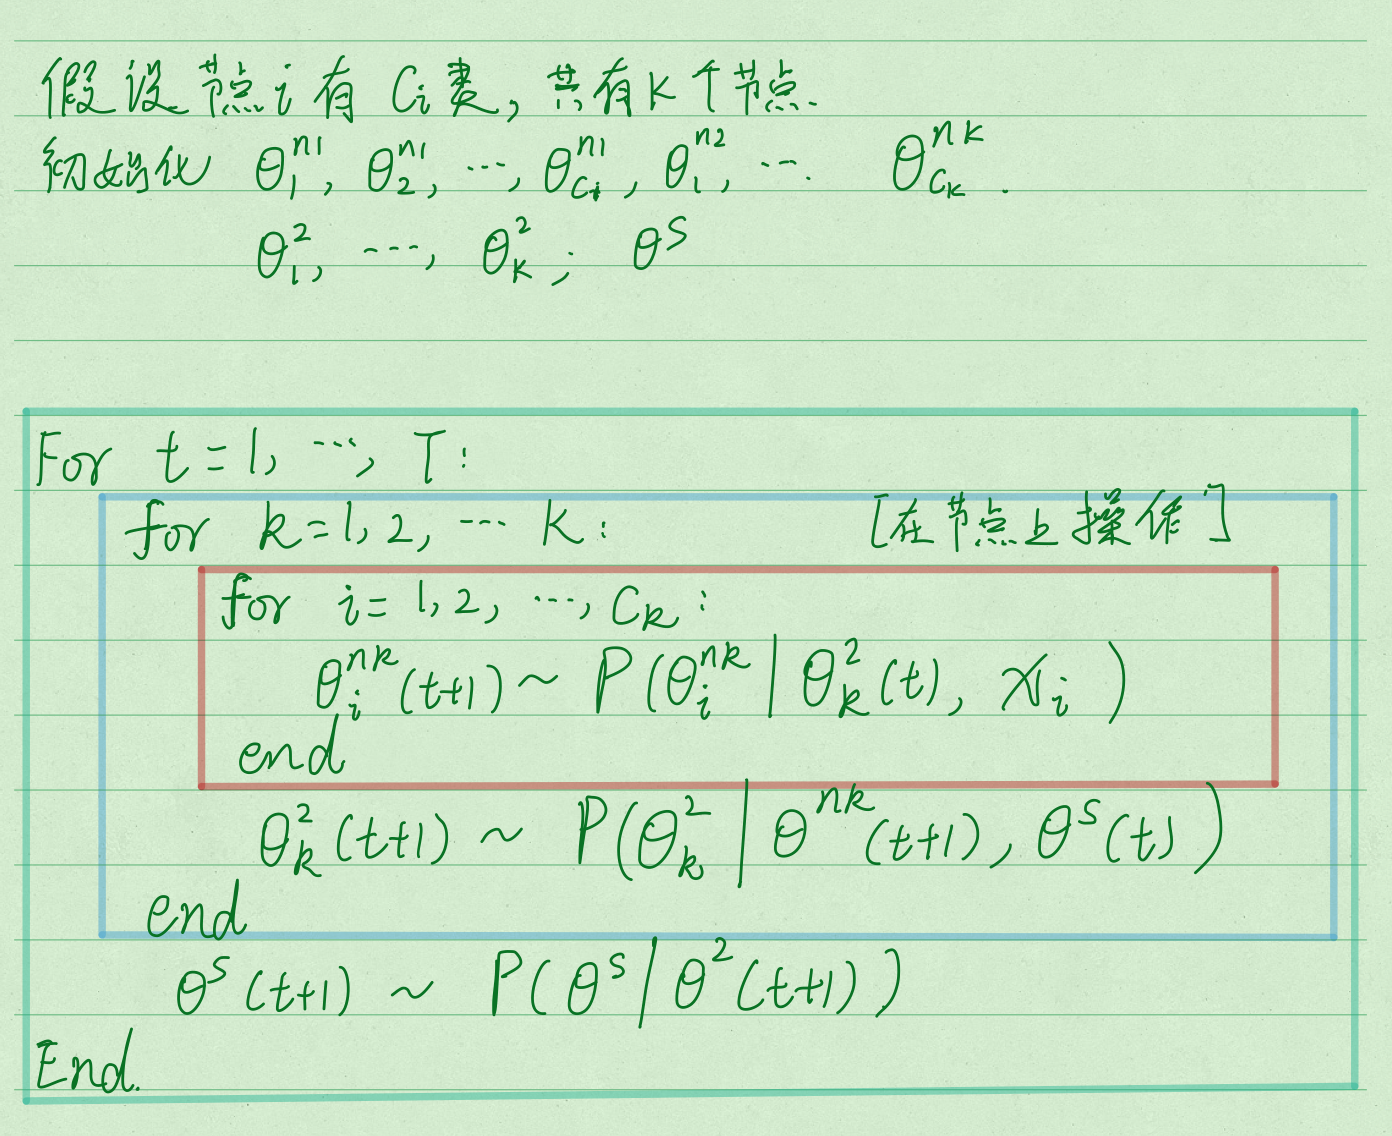 假设节点i有 Cᵢ类, 共有K个节点.
初始化 θ₁ⁿ¹, θ₂ⁿ¹, ⋯, θ_{Cᵢ}^{n1}, θ₁ⁿ², ⋯. θ_{C_K}^{nK}.
θ₁², ⋯, θ_K²; θˢ
For t=1, ⋯, T:
for k=1, 2, ⋯ K: [在节点上操作]
for i=1, 2, ⋯, C_k:
θᵢ^{nk}(t+1) ~ P(θᵢ^{nk} | θ_k²(t), xᵢ)
end
θ_k²(t+1) ~ P(θ_k² | θ^{nk}(t+1), θˢ(t))
end
θˢ(t+1) ~ P(θˢ | θ²(t+1))
End.